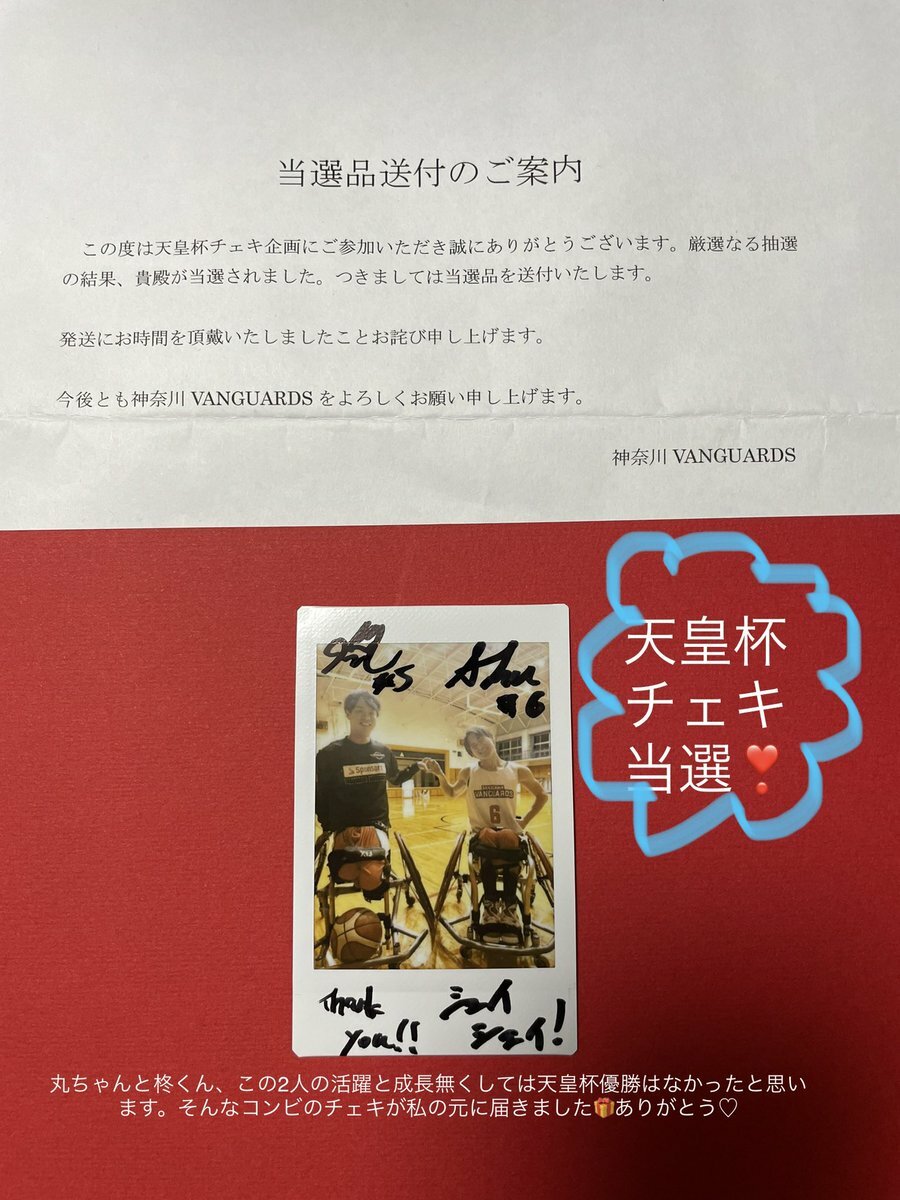 当選品送付のご案内
この度は天皇杯チェキ企画にご参加いただき誠にありがとうございます。厳選なる抽選
の結果、貴殿が当選されました。つきましては当選品を送付いたします。
発送にお時間を頂戴いたしましたことお詫び申し上げます。
今後とも神奈川 VANGUARDS をよろしくお願い申し上げます。
神奈川 VANGUARDS
天皇杯
チェキ
当選❣️
#5
#6
VANGUARDS
6
Thank
you!!
シェイ
シェイ!
丸ちゃんと柊くん、この2人の活躍と成長無くしては天皇杯優勝はなかったと思い
ます。そんなコンビのチェキが私の元に届きました🎁ありがとう♡